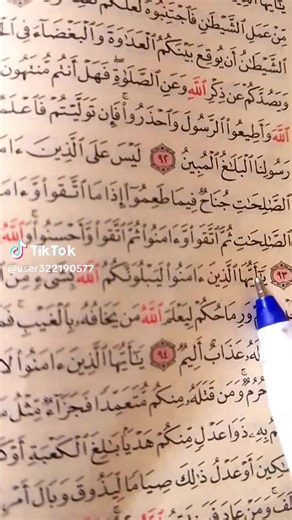 مِّنْ عَمَلِ ٱلشَّيْطَٰنِ فَٱجْتَنِبُوهُ لَعَلَّكُمْ
ٱلشَّيْطَٰنُ أَن يُوقِعَ بَيْنَكُمُ ٱلْعَدَٰوَةَ وَٱلْبَغْضَآءَ فِى
وَيَصُدَّكُمْ عَن ذِكْرِ ٱللَّهِ وَعَنِ ٱلصَّلَوٰةِ فَهَلْ أَنتُم مُّنتَهُونَ
ٱللَّهَ وَأَطِيعُوا۟ ٱلرَّسُولَ وَٱحْذَرُوا۟ فَإِن تَوَلَّيْتُمْ فَٱعْلَمُ
رَسُولِنَا ٱلْبَلَٰغُ ٱلْمُبِينُ ٩٢ لَيْسَ عَلَى ٱلَّذِينَ ءَامَ
ٱلصَّٰلِحَٰتِ جُنَاحٌ فِيمَا طَعِمُوٓا۟ إِذَا مَا ٱتَّقَوا۟ وَّءَامَ
ٱلصَّٰلِحَٰتِ ثُمَّ ٱتَّقَوا۟ وَّءَامَنُوا۟ ثُمَّ ٱتَّقَوا۟ وَّأَحْسَنُوا۟ وَٱللَّهُ
TikTok
@user322190577
٩٣ يَٰٓأَيُّهَا ٱلَّذِينَ ءَامَنُوا۟ لَيَبْلُوَنَّكُمُ ٱللَّهُ بِشَىْءٍ مِّنَ
وَرِمَاحُكُمْ لِيَعْلَمَ ٱللَّهُ مَن يَخَافُهُۥ بِٱلْغَيْبِ
لَهُۥ عَذَابٌ أَلِيمٌ ٩٤ يَٰٓأَيُّهَا ٱلَّذِينَ ءَامَنُوا۟ لَا
حُرُمٌ وَمَن قَتَلَهُۥ مِنكُم مُّتَعَمِّدًا فَجَزَآءٌ مِّثْلُ
بِهِۦ ذَوَا عَدْلٍ مِّنكُمْ هَدْيًۢا بَٰلِغَ ٱلْكَعْبَةِ أَوْ
أَوْ عَدْلُ ذَٰلِكَ صِيَامًا لِّيَذُوقَ وَبَالَ
وَمَنْ عَادَ